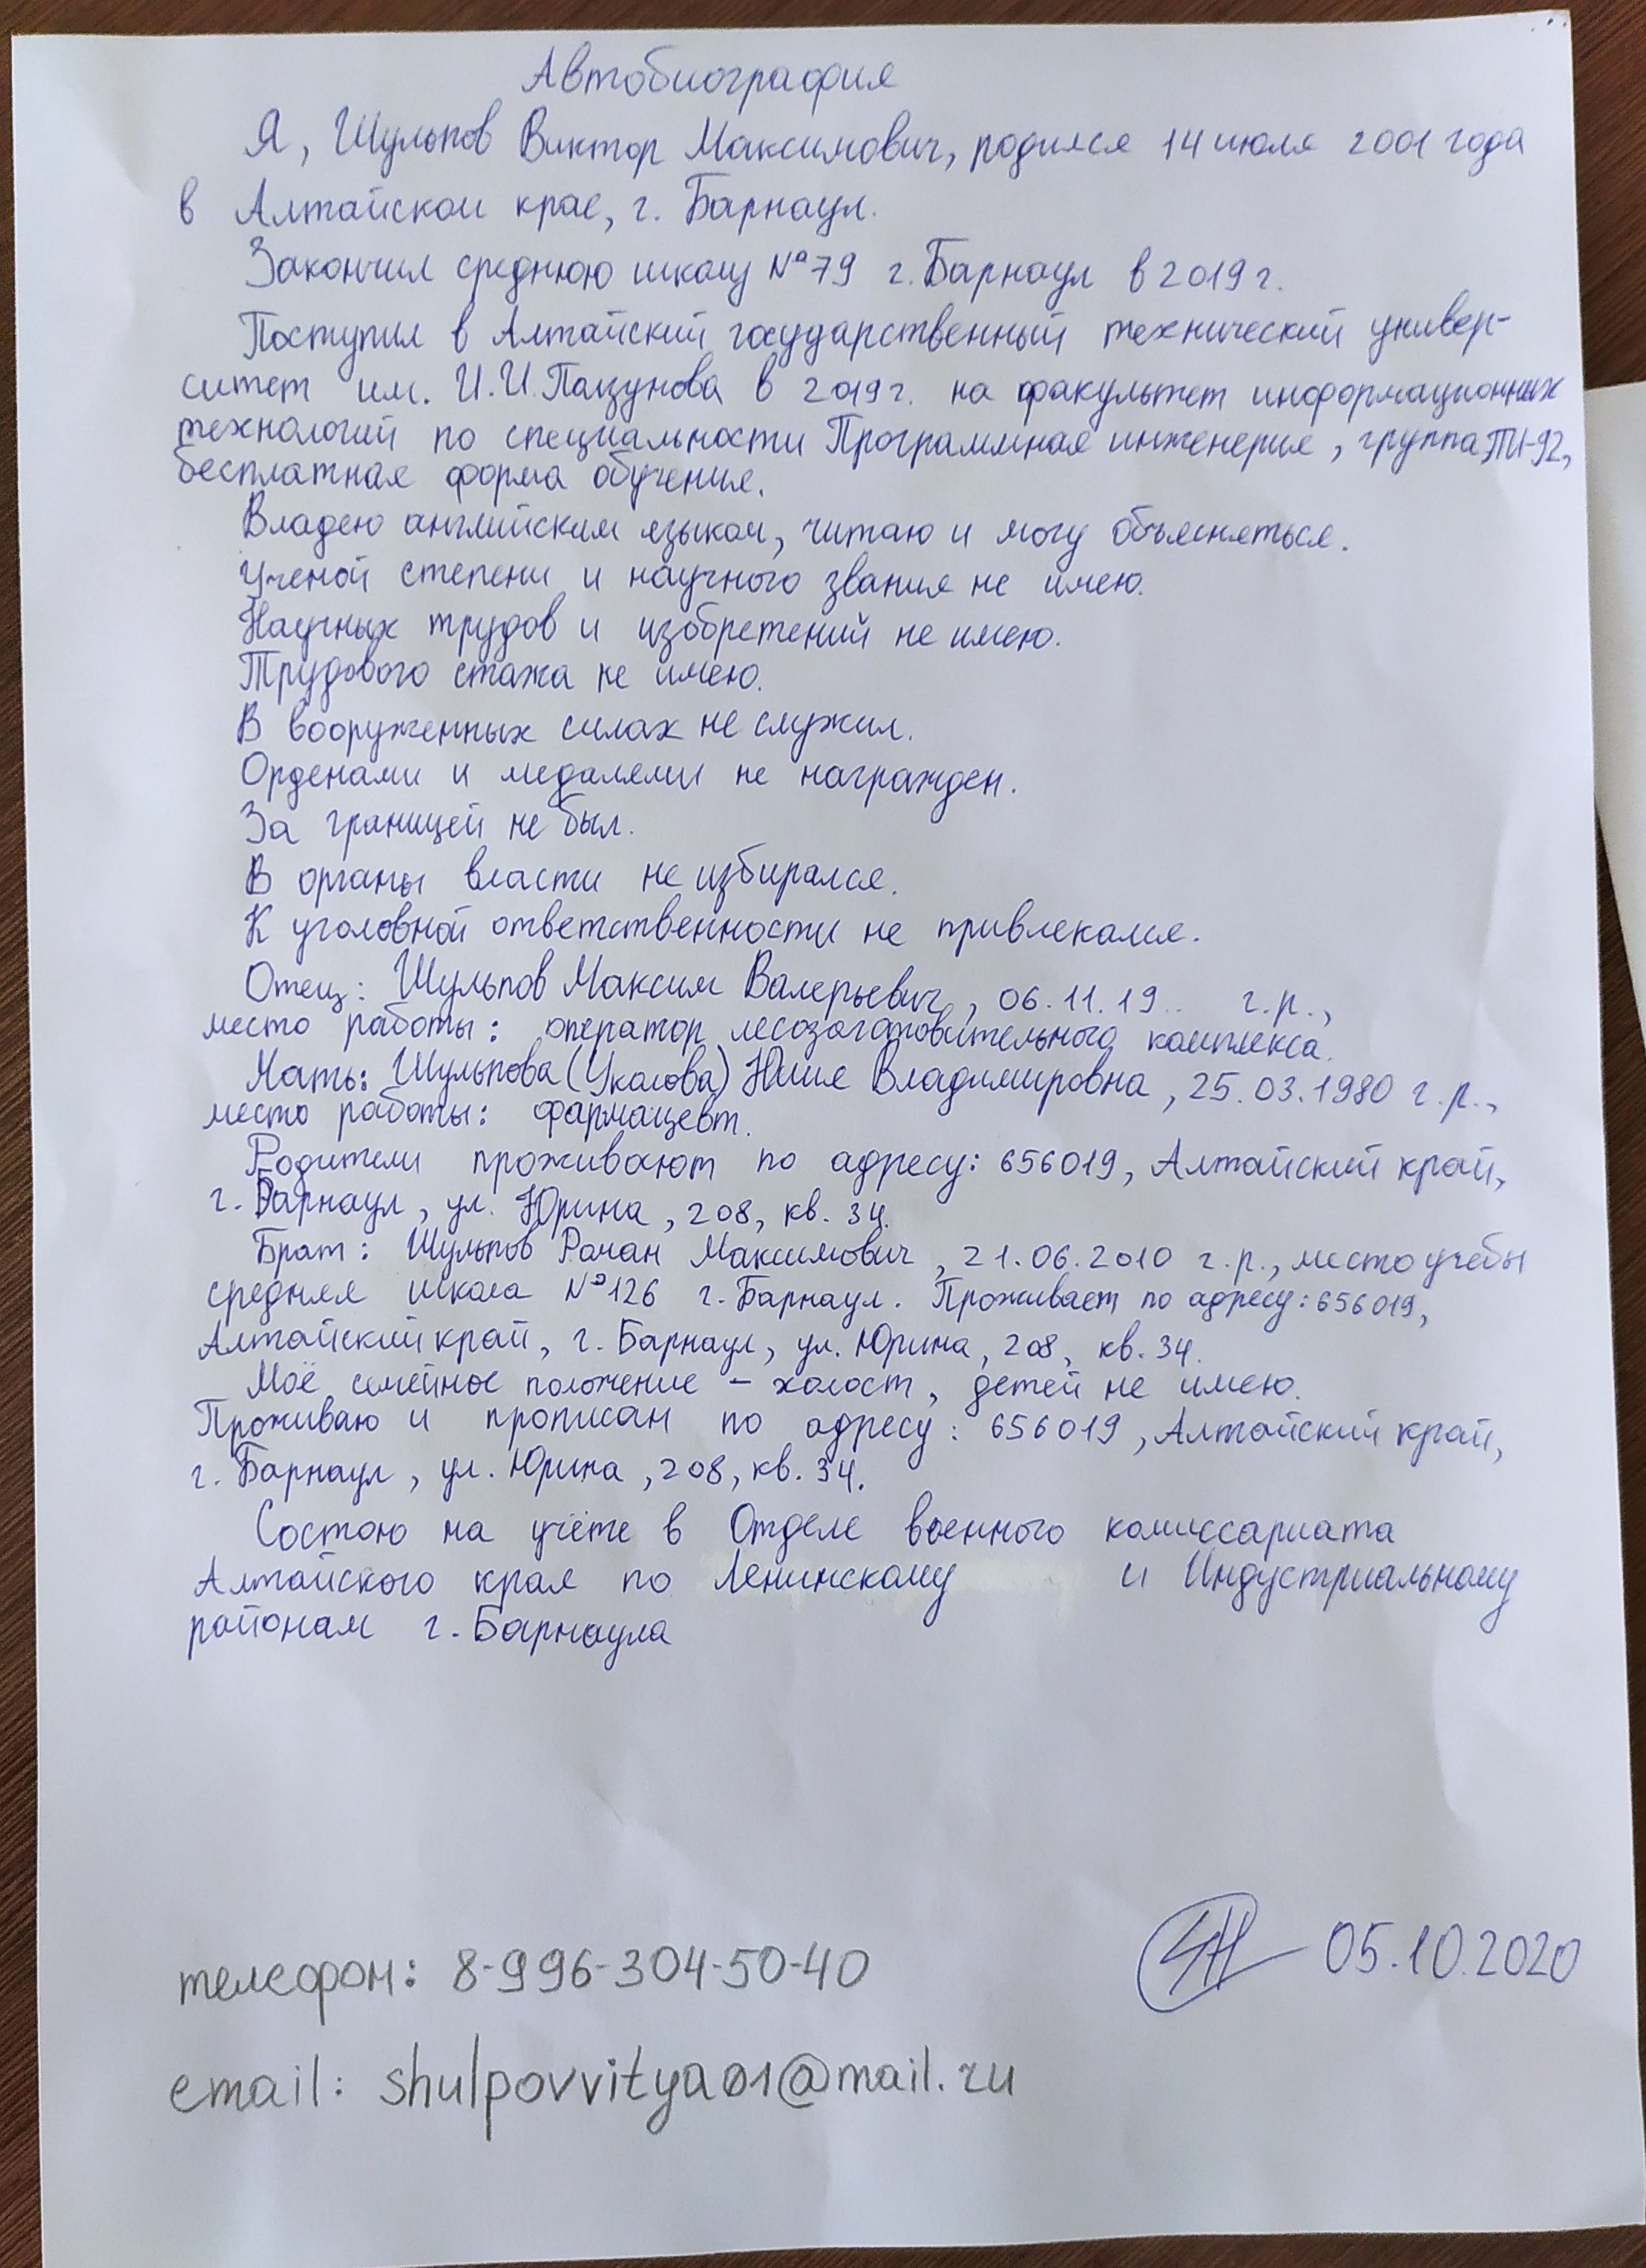 Автобиография
Я, Шульпов Виктор Максимович, родился 14 июля 2001 года
в Алтайском крае, г. Барнаул.
Закончил среднюю школу №79 г. Барнаул в 2019 г.
Поступил в Алтайский государственный технический универ-
ситет им. И.И. Ползунова в 2019 г. на факультет информационных
технологий по специальности Программная инженерия, группа ПИ-92,
бесплатная форма обучения.
Владею английским языком, читаю и могу объясняться.
Ученой степени и научного звания не имею.
Научных трудов и изобретений не имею.
Трудового стажа не имею.
В вооруженных силах не служил.
Орденами и медалями не награжден.
За границей не был.
В органы власти не избирался.
К уголовной ответственности не привлекался.
Отец: Шульпов Максим Валерьевич, 06.11.19.. г.р.,
место работы: оператор лесозаготовительного комплекса.
Мать: Шульпова (Уколова) Юлия Владимировна, 25.03.1980 г.р.,
место работы: фармацевт.
Родители проживают по адресу: 656019, Алтайский край,
г. Барнаул, ул. Юрина, 208, кв. 34.
Брат: Шульпов Роман Максимович, 21.06.2010 г.р., место учебы
средняя школа №126 г. Барнаул. Проживает по адресу: 656019,
Алтайский край, г. Барнаул, ул. Юрина, 208, кв. 34.
Моё семейное положение – холост, детей не имею.
Проживаю и прописан по адресу: 656019, Алтайский край,
г. Барнаул, ул. Юрина, 208, кв. 34.
Состою на учёте в Отделе военного комиссариата
Алтайского края по Ленинскому и Индустриальному
районам г. Барнаула
05.10.2020
телефон: 8-996-304-50-40
email: shulpovvitya01@mail.ru